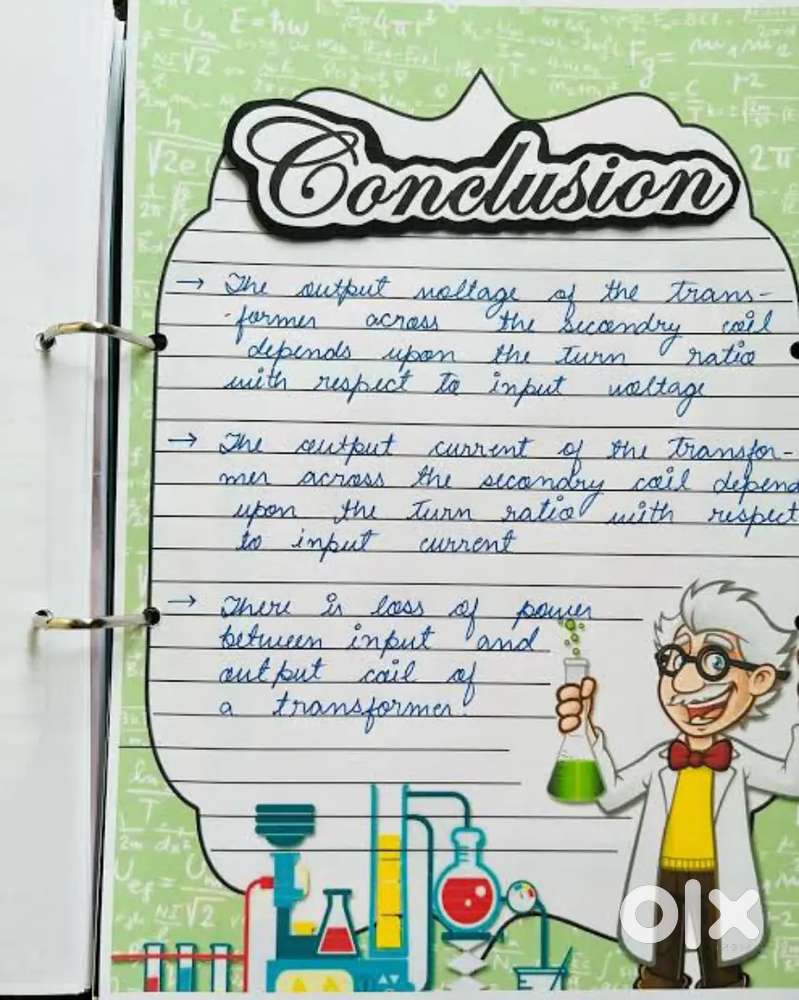 E = ħω
4πr²
Conclusion
→ The output voltage of the trans-
former across the secondry coil
depends upon the turn ratio
with respect to input voltage
→ The output current of the transfor-
mer across the secondry coil depend
upon the turn ratio with respect
to input current
→ There is loss of power
between input and
output coil of
a transformer.
olx